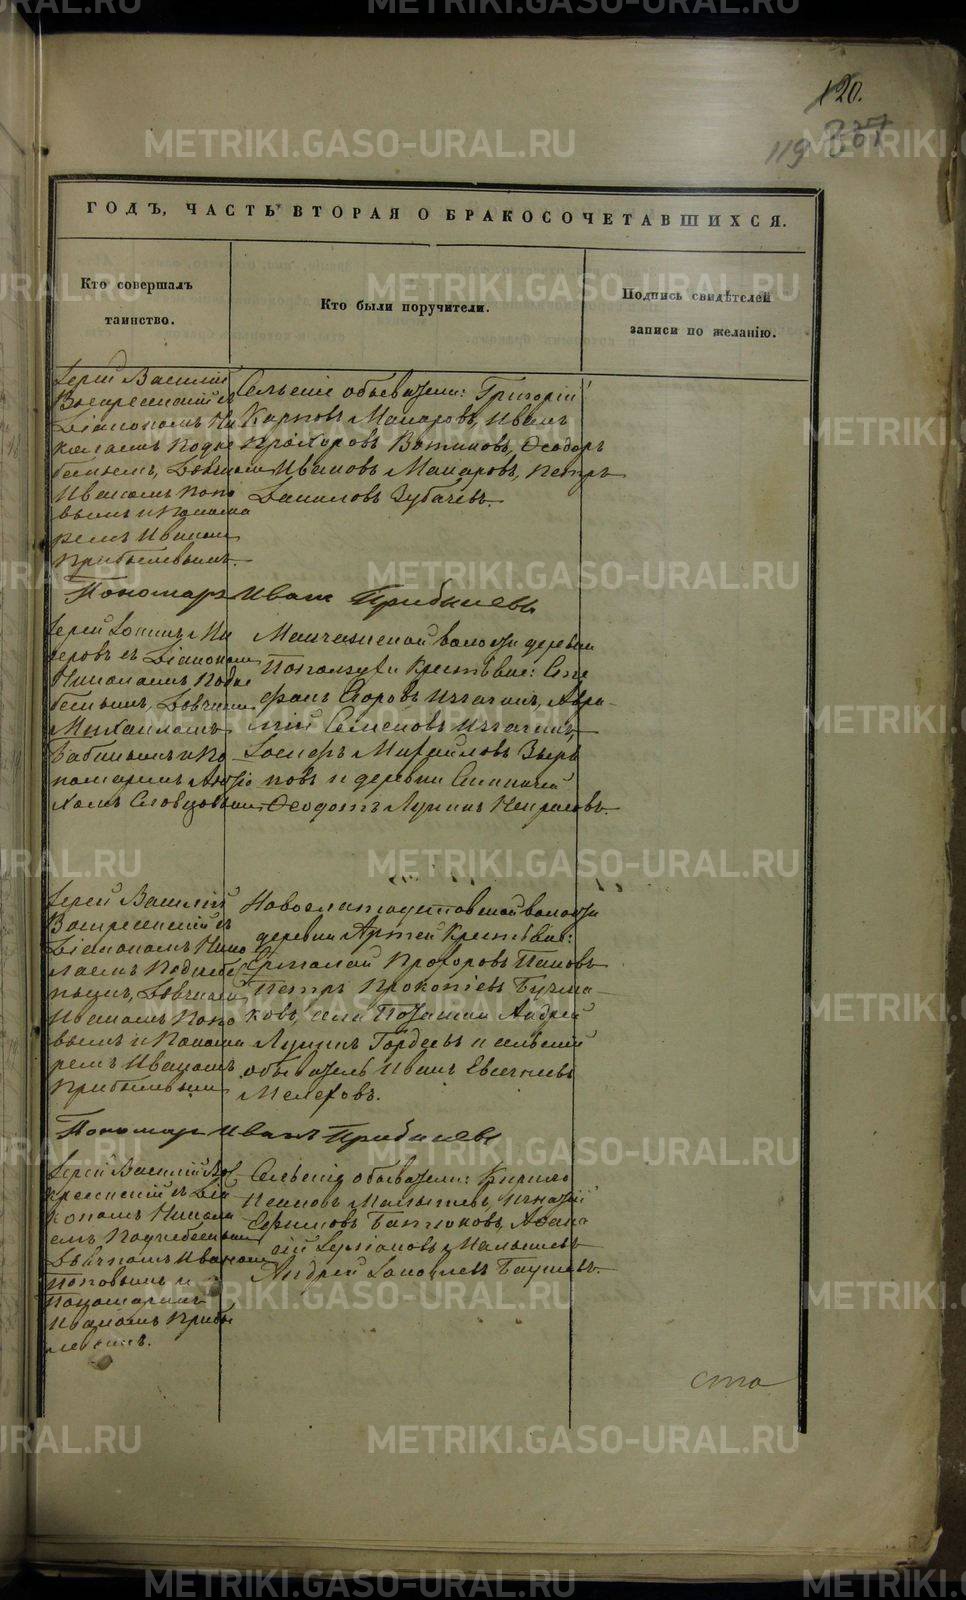 120.
119 337
ГОДЪ, ЧАСТЬ ВТОРАЯ О БРАКОСОЧЕТАВШИХСЯ.
Кто совершалъ
таинство.
Кто были поручители.
Подпись свидѣтелей
записи по желанію.
Іерей Василій
Воскресенскій съ
Діакономъ Ни
колаемъ Подне
беснымъ, Дьячкомъ
Иваномъ Попо
вымъ и Понома
ремъ Иваномъ
Прибылевымъ.
Сельскіе обыватели: Григорій
Карповъ Макаровъ, Иванъ
Прохоровъ Вотиновъ, Ѳеодоръ
Ивановъ Макаровъ, Петръ
Даниловъ Зубачевъ.
Пономарь Иванъ Прибылевъ
Іерей Іоаннъ
съ Діакономъ
Николаемъ Подне
беснымъ, Дьячкомъ
Михаиломъ
Бабинымъ и По
номаремъ
Словцовымъ
Манчажской волости деревни
Крестьяне: Сте
фанъ Егоровъ Игнатій
Семеновъ
Іосифъ Михайловъ Зыря
новъ и деревни
Ѳеодотъ Лукинъ Некрасовъ.
Іерей Василій
Воскресенскій съ
Діакономъ Нико
лаемъ Поднебес
нымъ, Дьячкомъ
Иваномъ Попо
вымъ и Понома
ремъ Иваномъ
Прибылевымъ
Новозлатоустовской волости
деревни Артей Крестьяне:
Ермолай Прохоровъ Пановъ
Петръ Прокопіевъ Бучма
ковъ, села Поташки Андрей
Лукинъ Гордеевъ и сельскій
обыватель Иванъ Евсигнѣевъ
Мелеховъ.
Пономарь Иванъ Прибылевъ
Іерей Василій Вос
кресенскій съ Діа
кономъ Никола
емъ Поднебеснымъ
Дьячкомъ Иваномъ
Поповымъ и
Пономаремъ
Иваномъ Прибы
левымъ.
Сельскіе обыватели: Кирило
Малышевъ, Игнатій
Ефимовъ Батюковъ, Афана
сій Малышевъ
Андрей Іаковлевъ
сто
METRIKI.GASO-URAL.RU